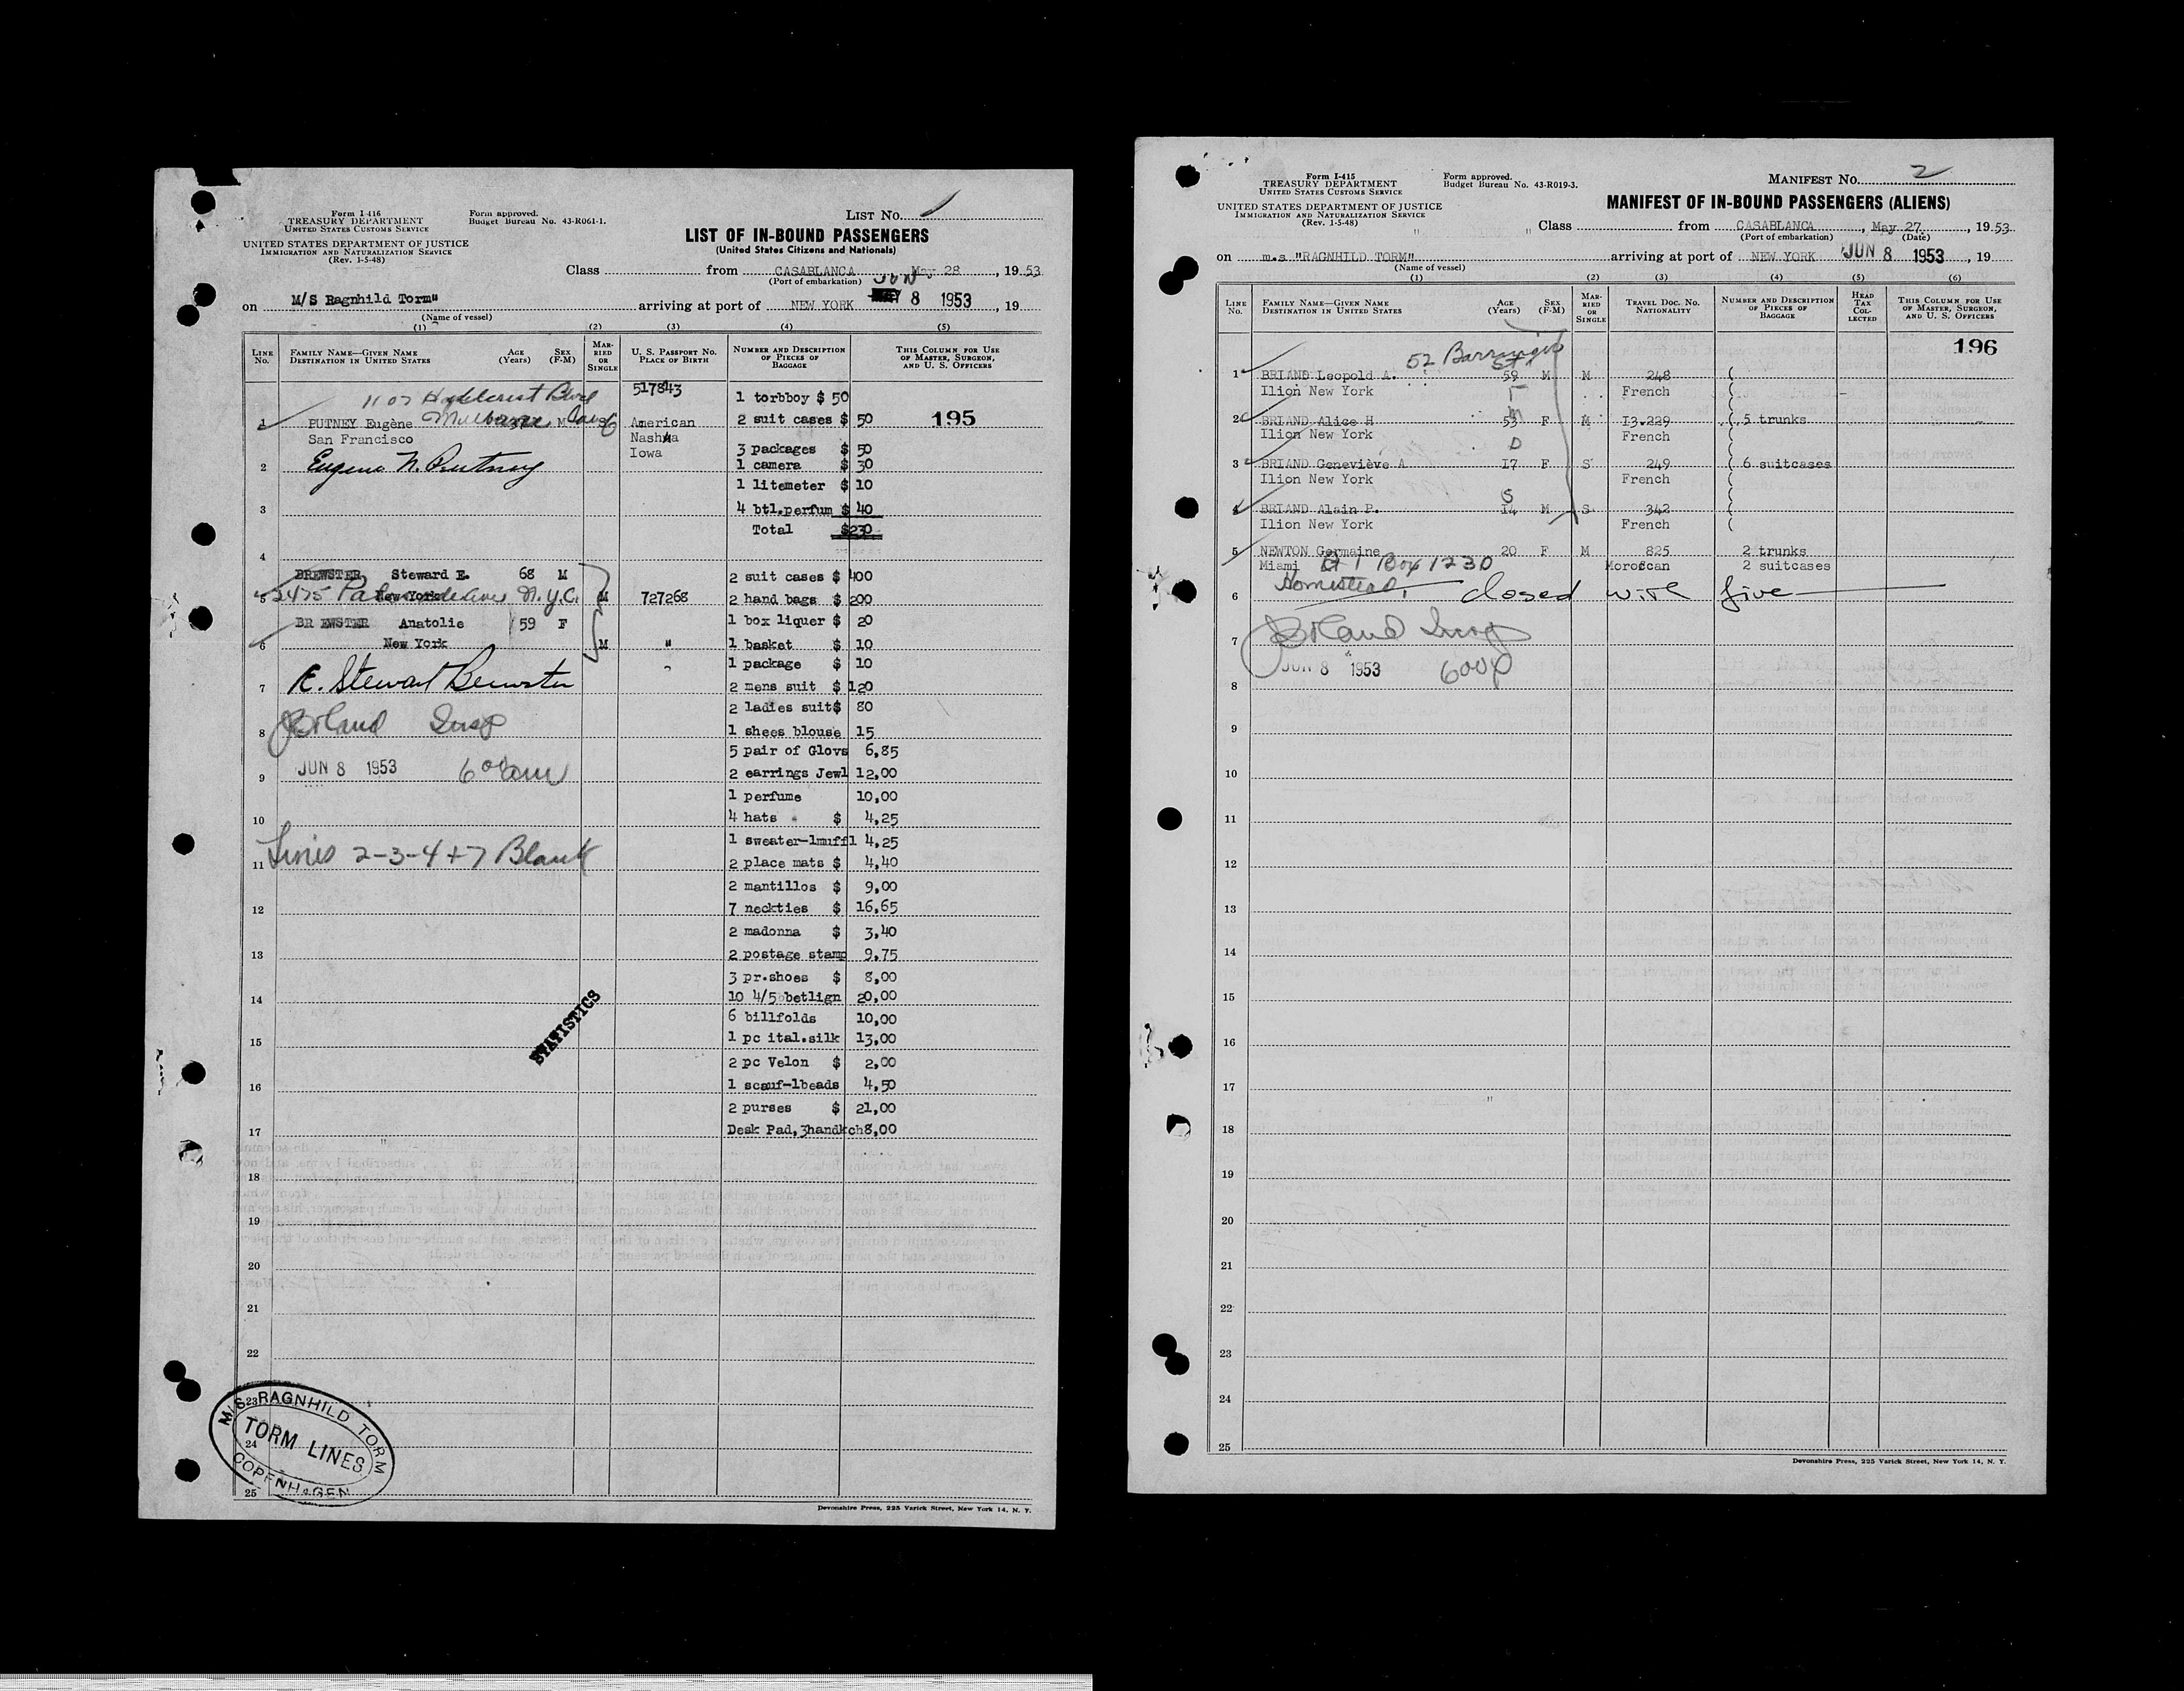 Form I-416
TREASURY DEPARTMENT
UNITED STATES CUSTOMS SERVICE
UNITED STATES DEPARTMENT OF JUSTICE
IMMIGRATION AND NATURALIZATION SERVICE
(Rev. 1-5-48)
Form approved.
Budget Bureau No. 43-R061-1.
LIST No.
LIST OF IN-BOUND PASSENGERS
(United States Citizens and Nationals)
Class from CASABLANCA May 28, 1953
(Port of embarkation)
on M/S Ragnhild Torm" arriving at port of NEW YORK JUN 8 1953, 19
(Name of vessel)
(1) (2) (3) (4) (5)
LINE No. FAMILY NAME—GIVEN NAME DESTINATION IN UNITED STATES AGE (Years) SEX (F-M) MARRIED OR SINGLE U. S. PASSPORT No. PLACE OF BIRTH NUMBER AND DESCRIPTION OF PIECES OF BAGGAGE THIS COLUMN FOR USE OF MASTER, SURGEON, AND U. S. OFFICERS
517843
1107 Blvd
1 torbboy $ 50
1 PUTNEY Eugène M American 2 suit cases $ 50 195
San Francisco Nashua
Iowa 3 packages $ 50
2 Eugene N. Putney 1 camera $ 30
1 litemeter $ 10
3 4 btl.perfum $ 40
Total $230
4
BREWSTER Steward E. 68 M 2 suit cases $ 400
5 2475 New York N.Y.C. M 727268 2 hand bags $ 200
BR EWSTER Anatolie 59 F 1 box liquer $ 20
6 New York M " 1 basket $ 10
1 package $ 10
7 E. Stewart Brewster 2 mens suit $ 120
2 ladies suit$ 80
8 Boland Insp 1 shees blouse 15
5 pair of Glovs 6,85
9 JUN 8 1953 600am 2 earrings Jewl 12,00
1 perfume 10,00
10 4 hats $ 4,25
1 sweater-1muffl 4,25
11 Lines 2-3-4+7 Blank 2 place mats $ 4,40
2 mantillos $ 9,00
12 7 neckties $ 16,65
2 madonna $ 3,40
13 2 postage stamp 9,75
3 pr.shoes $ 8,00
14 10 4/5 betlign 20,00
6 billfolds 10,00
15 STATISTICS 1 pc ital.silk 13,00
2 pc Velon $ 2,00
16 1 scauf-1beads 4,50
2 purses $ 21,00
17 Desk Pad,3handkch8,00
18
19
20
21
22
23
24
25
M/S RAGNHILD TORM
TORM LINES
COPENHAGEN
Devonshire Press, 225 Varick Street, New York 14, N. Y.
Form I-415
TREASURY DEPARTMENT
UNITED STATES CUSTOMS SERVICE
UNITED STATES DEPARTMENT OF JUSTICE
IMMIGRATION AND NATURALIZATION SERVICE
(Rev. 1-5-48)
Form approved.
Budget Bureau No. 43-R019-3.
MANIFEST No. 2
MANIFEST OF IN-BOUND PASSENGERS (ALIENS)
" " Class from CASABLANCA, May 27, 1953
(Port of embarkation) (Date)
on m.s "RAGNHILD TORM" arriving at port of NEW YORK JUN 8 1953, 19
(Name of vessel)
(1) (2) (3) (4) (5) (6)
LINE No. FAMILY NAME—GIVEN NAME DESTINATION IN UNITED STATES AGE (Years) SEX (F-M) MARRIED OR SINGLE TRAVEL DOC. No. NATIONALITY NUMBER AND DESCRIPTION OF PIECES OF BAGGAGE HEAD TAX COLLECTED THIS COLUMN FOR USE OF MASTER, SURGEON, AND U. S. OFFICERS
196
52 St
1 BRIAND Leopold A. 59 M M 248 (
Ilion New York French (
2 BRIAND Alice H 53 F M I3.229 ( 5 trunks
Ilion New York French (
3 BRIAND Geneviève A 17 F S 249 ( 6 suitcases
Ilion New York French (
4 BRIAND Alain P. 14 M S 342 (
Ilion New York French (
5 NEWTON Germaine 20 F M 825 2 trunks
Miami Rt 1 Box 1230 Moroccan 2 suitcases
6 Homestead, closed with five
7 Boland Insp
JUN 8 1953 600p
8
9
10
11
12
13
14
15
16
17
18
19
20
21
22
23
24
25
Devonshire Press, 225 Varick Street, New York 14, N. Y.